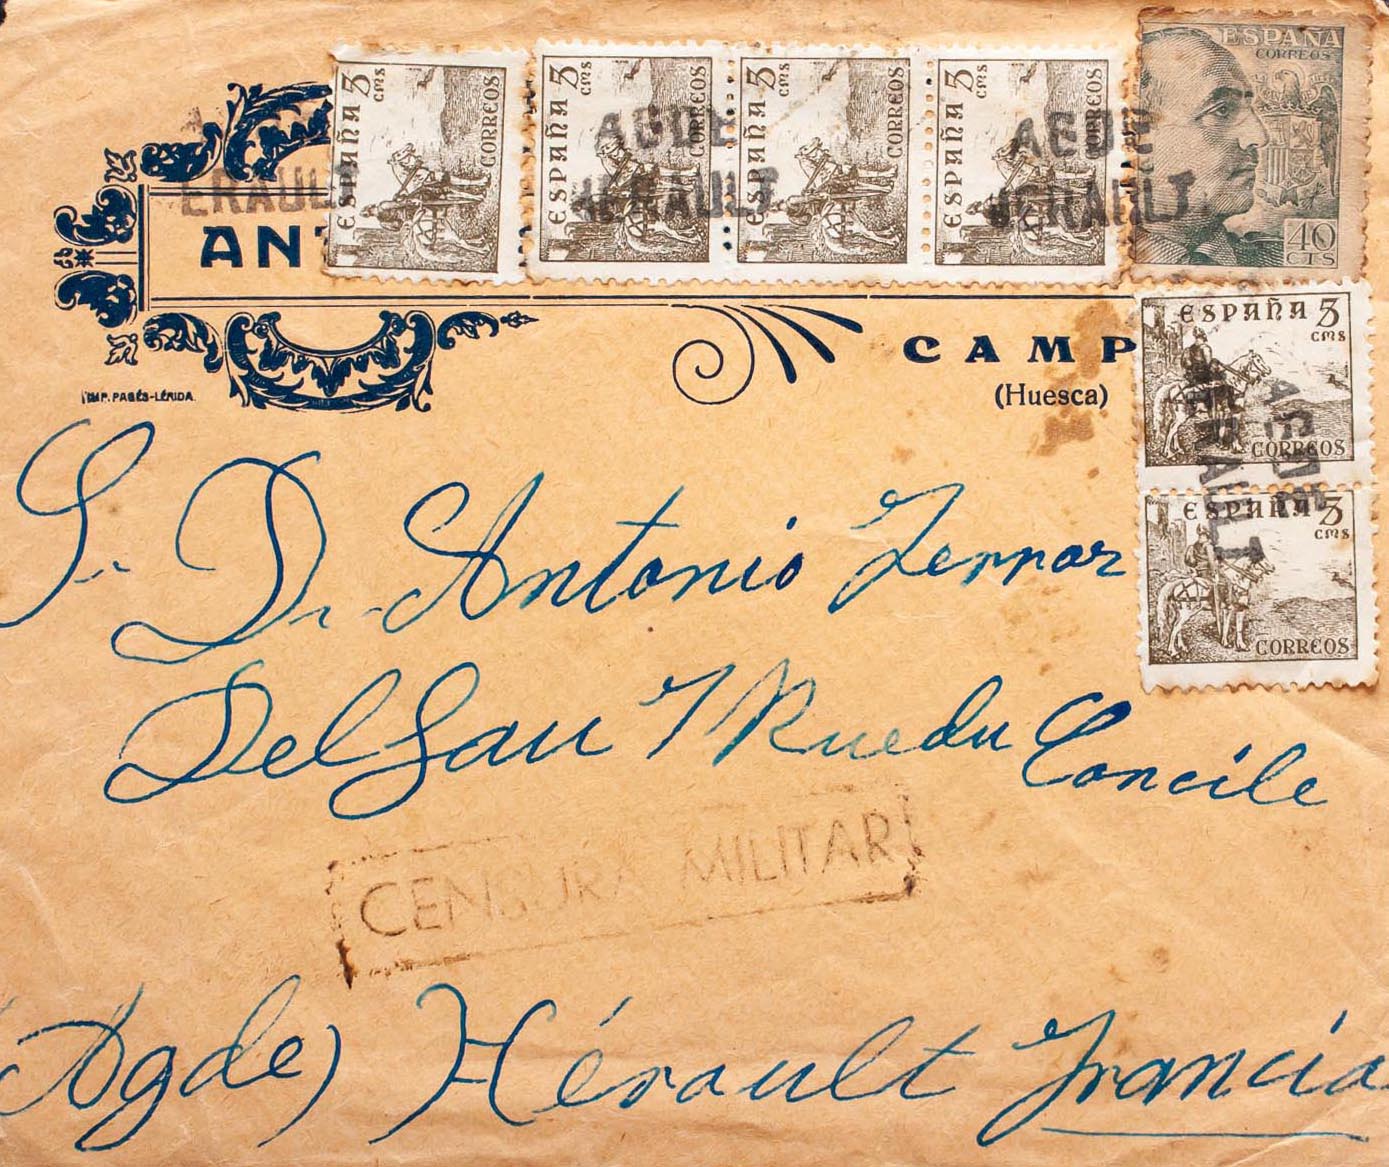 ESPAÑA 5 cms CORREOS
ESPAÑA 5 cms CORREOS
ESPAÑA 5 cms CORREOS
ESPAÑA 5 cms CORREOS
ESPAÑA
CORREOS
40
CTS
ERAULT
AGDE
HERAULT
AGDE
HERAULT
ANT
CAMP
(Huesca)
IMP. PAGÉS-LÉRIDA.
ESPAÑA 5
cms
CORREOS
ESPAÑA 5
cms
CORREOS
AGDE
HERAULT
S. D. Antonio Ferrar
Delgau 7 Rue du Concile
CENSURA MILITAR
(Agde) Hérault Francia